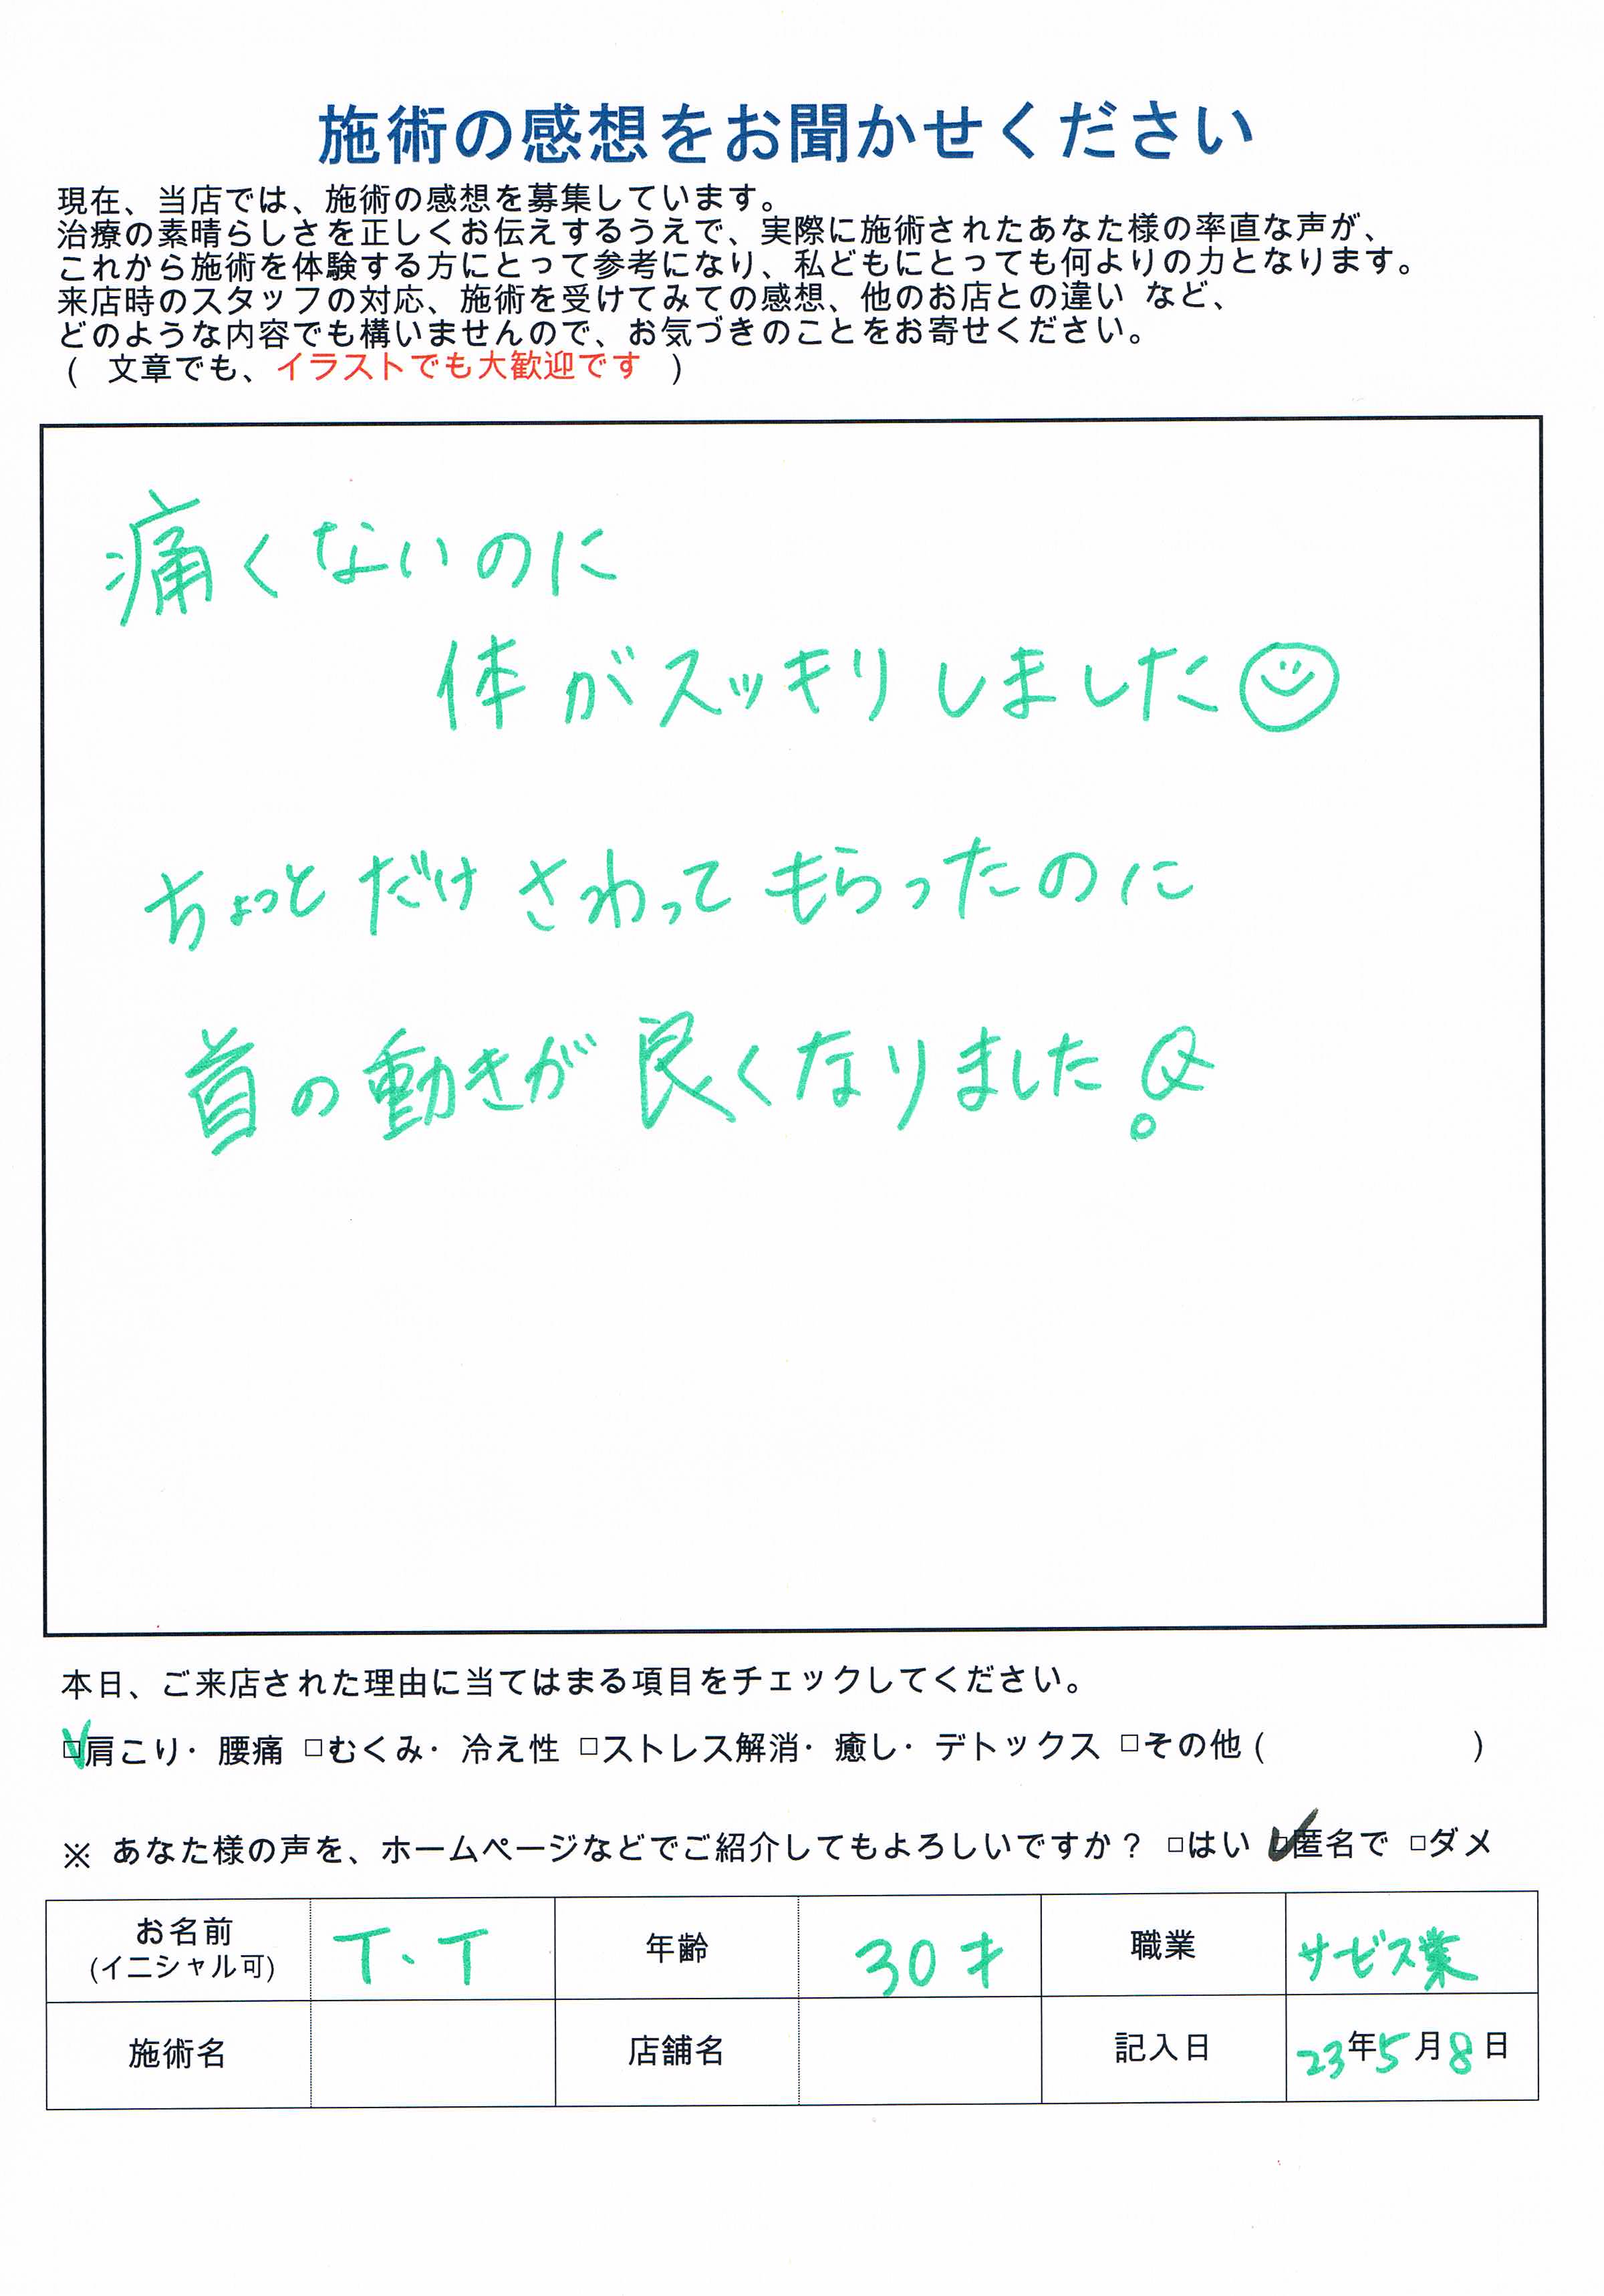 施術の感想をお聞かせください
現在、当店では、施術の感想を募集しています。
治療の素晴らしさを正しくお伝えするうえで、実際に施術されたあなた様の率直な声が、
これから施術を体験する方にとって参考になり、私どもにとっても何よりの力となります。
来店時のスタッフの対応、施術を受けてみての感想、他のお店との違い など、
どのような内容でも構いませんので、お気づきのことをお寄せください。
( 文章でも、イラストでも大歓迎です )
痛くないのに
体がスッキリしました
ちょっとだけさわってもらったのに
首の動きが良くなりました
本日、ご来店された理由に当てはまる項目をチェックしてください。
☑肩こり・腰痛 □むくみ・冷え性 □ストレス解消・癒し・デトックス □その他 ( )
※ あなた様の声を、ホームページなどでご紹介してもよろしいですか？ □はい ☑匿名で □ダメ
お名前 (イニシャル可) T・T 年齢 30才 職業 サービス業
施術名 店舗名 記入日 23年5月8日